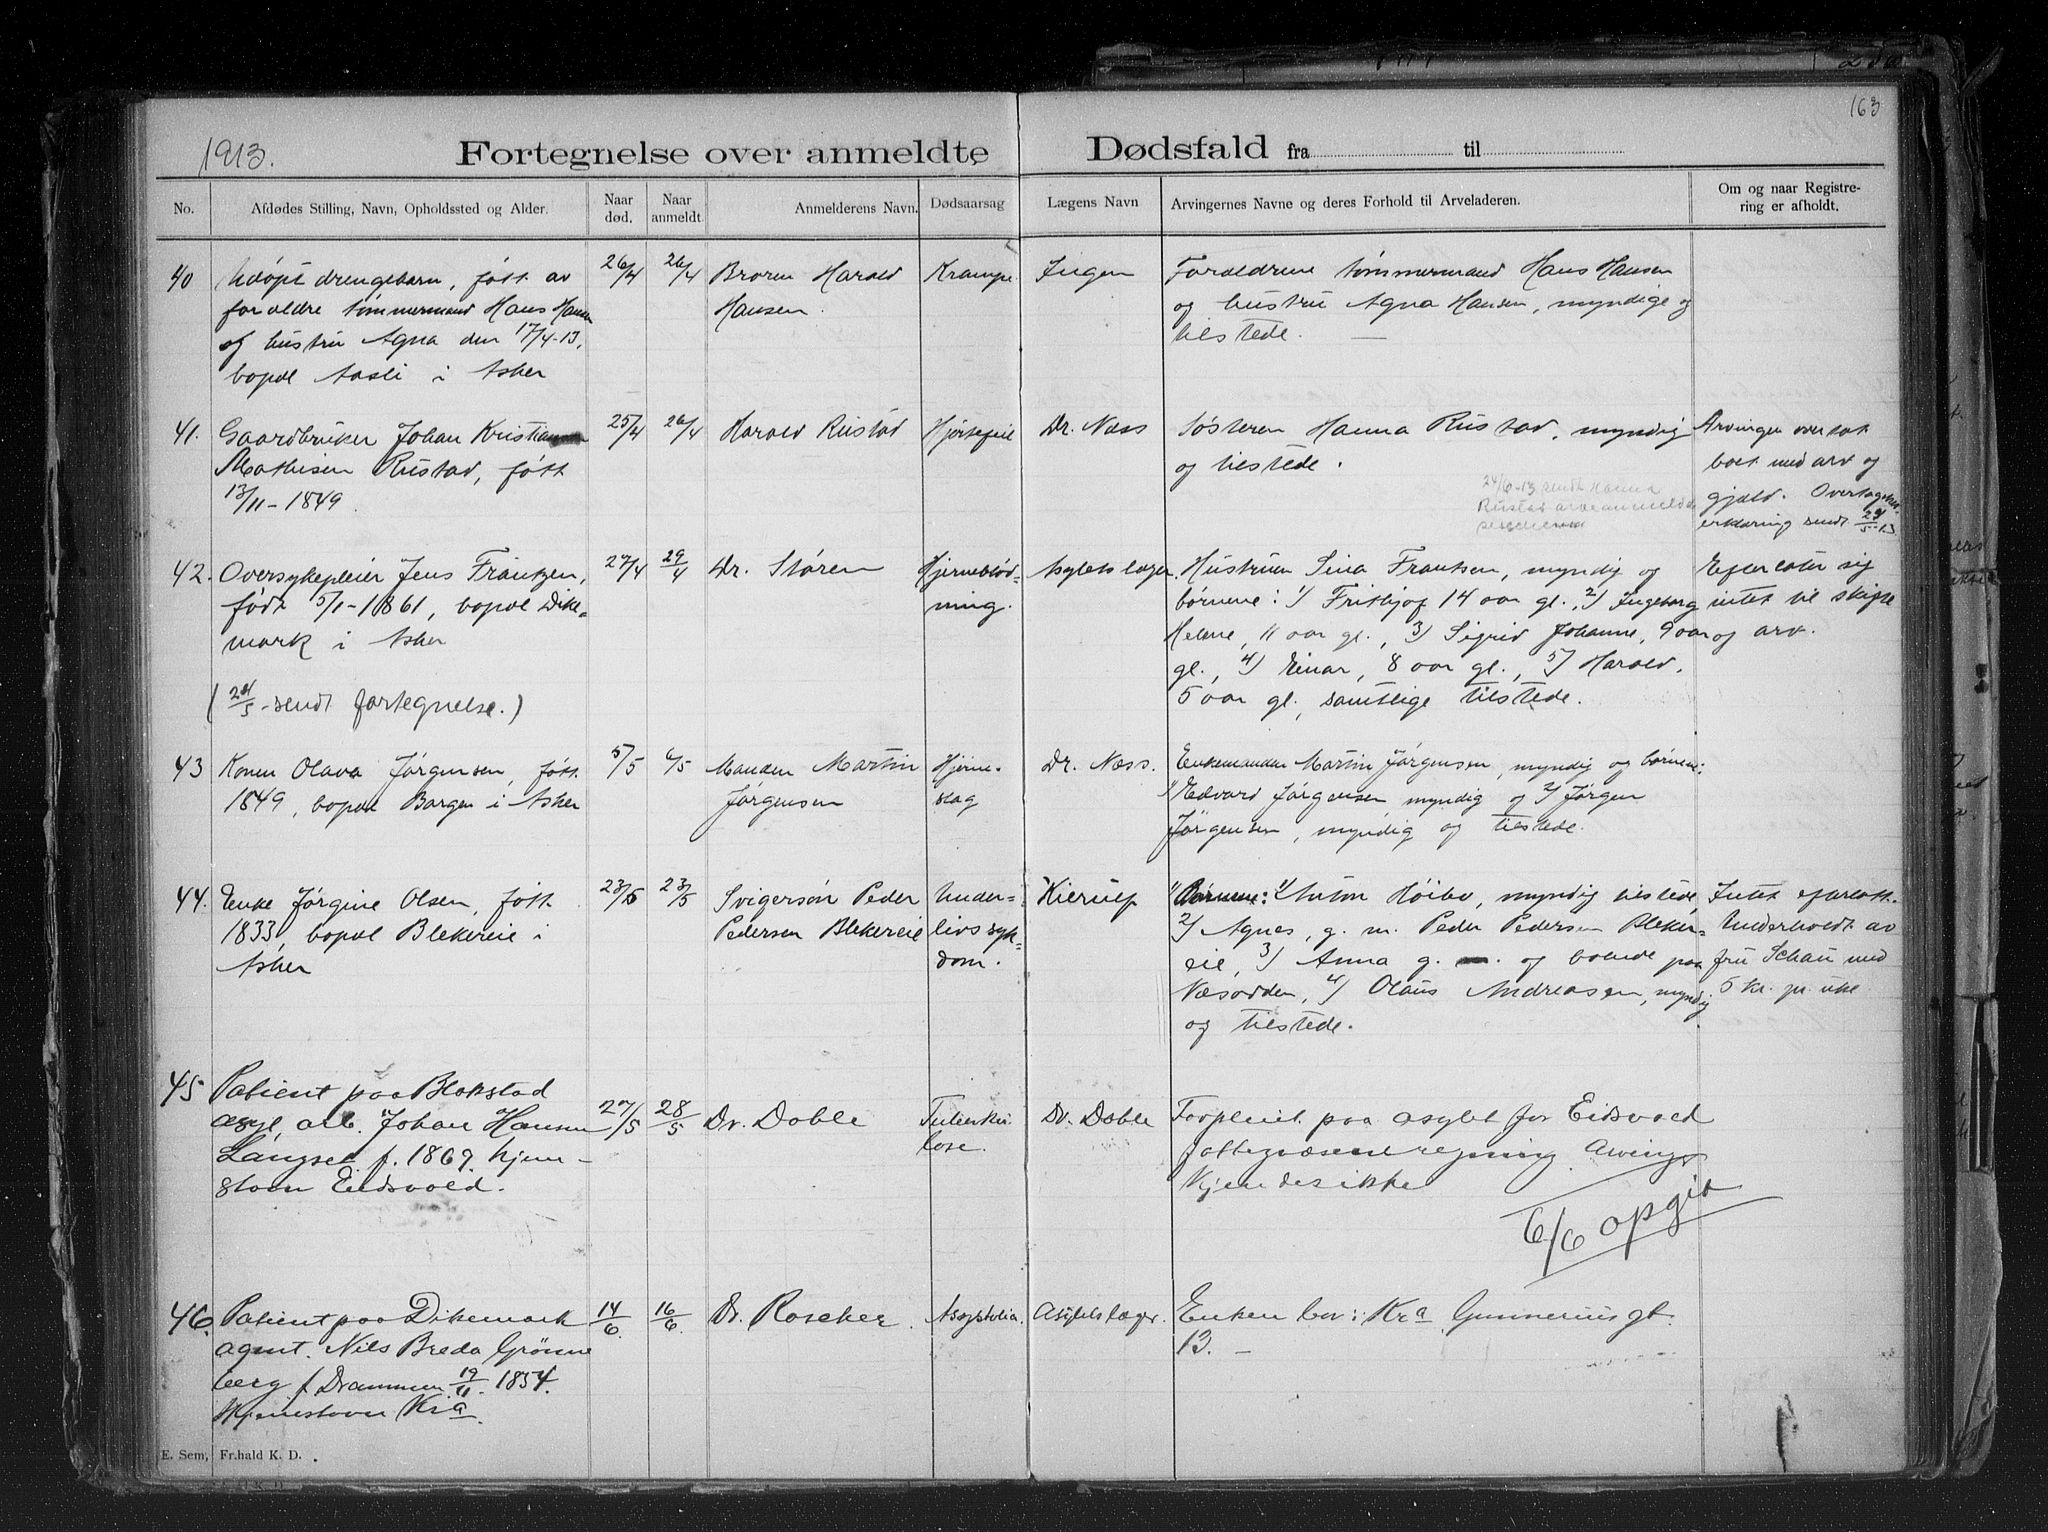 163
1913.
Fortegnelse over anmeldte Dødsfald fra til
No.
Afdødes Stilling, Navn, Opholdssted og Alder.
Naar død.
Naar anmeldt.
Anmelderens Navn.
Dødsaarsag
Lægens Navn
Arvingernes Navne og deres Forhold til Arveladeren.
Om og naar Registre-
ring er afholdt.
40
Udøpt drengebarn, født av
forældre tømmermand Hans Hansen
og hustru Agna den 17/4-13,
bopæl Aasli i Asker
26/4
26/4
Broren Harald
Hansen.
Krampe
Ingen
Forældrene tømmermand Hans Hansen
og hustru Agna Hansen, myndige og
tilstede.
41.
Gaardbruker Johan Kristian
Mathisen Rustad, født
13/11-1849.
25/4
26/4
Harald Rustad
Hjertefeil
Dr. Næss
Søsteren Hanna Rustad, myndig
og tilstede.
24/6-13 sendt Hanna
Rustad arveanmeldelses
Arvingen overtok
boet med arv og
gjæld. Overtagelses-
erklæring sendt 29/5-13
42.
Oversykepleier Jens Frantzen,
født 5/1-1861, bopæl Dike-
mark i Asker
(29/5 sendt fortegnelse.)
27/4
29/4
Dr. Støren
Hjerneblød-
ning.
Asylets læge.
Hustruen Sina Frantsen, myndig og
børnene: 1) Frithjof 14 aar gl., 2) Ingeborg
Helene, 11 aar gl., 3) Sigrid Johanne, 9 aar
gl., 4) Einar, 8 aar gl., 5) Harald,
5 aar gl., samtlige tilstede.
Efterlater sig
intet til skifte
og arv.
43
Konen Olava Jørgensen, født
1849, bopæl Borgen i Asker
5/5
6/5
Manden Martin
Jørgensen
Hjerne-
slag
Dr. Næss.
Enkemanden Martin Jørgensen, myndig og børnene:
1) Edvard Jørgensen myndig og 2) Jørgen
Jørgensen, myndig og tilstede.
44.
Enke Jørgine Olsen, født
1833, bopæl Blekereie i
Asker
23/5
23/5
Svigersøn Peder
Pedersen Blekereie
Under-
livssyk-
dom.
Kierulf
Børnene: 1) Anton Høibo, myndig tilstede,
2) Agnes, g. m. Peder Pedersen Bleker-
eie, 3) Anna g. og boende paa
Næsodden, 4) Olaus Andreasen, myndig
og tilstede.
Intet efterlatt.
Underholdt av
fru Schau med
5 kr. pr. uke
45
Patient paa Blakstad
asyl, arb. Johan Hansen
Langset f. 1869. hjem-
stavn Eidsvold.
27/5
28/5
Dr. Doble
Tuberku-
lose.
Dr. Doble
Forpleiet paa asylet for Eidsvold
fattigvæsens regning. Arvinger
kjendes ikke
6/6 opgit
46.
Patient paa Dikemark
agent. Nils Breda Grønne
berg f. Drammen 19/11-1854.
Hjemstavn Kra.
14/6
16/6
Dr. Roscher
Asystolia.
Asylets læge.
Enken bor: Kra Gunnerius gt.
13. -
E. Sem, Fr.hald K. D.